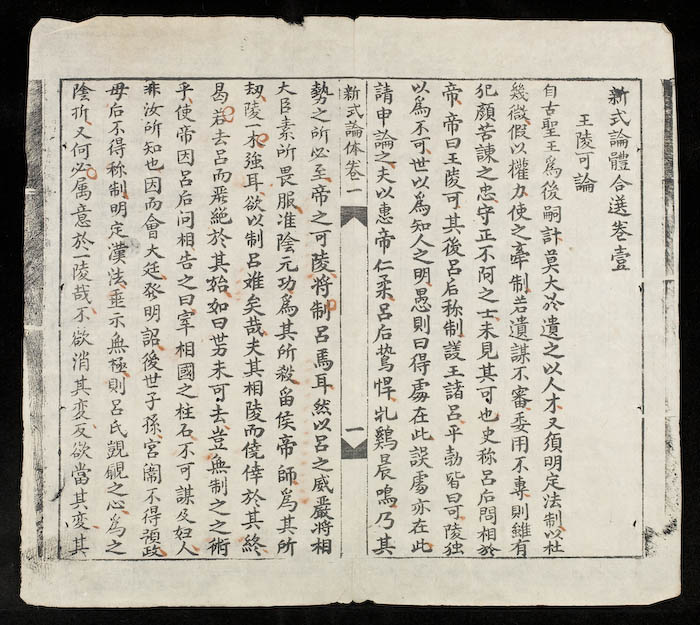 新式論體合選卷壹
王陵可論
自古聖王為後嗣計莫大於遺之以人才又須明定法制以杜
幾微假以權力使之牽制若遺謀不審委用不專則雖有
犯顏苦諫之忠守正不阿之士未見其可也史称呂后問相於
帝帝曰王陵可其後呂后称制議王諸呂平勃皆曰可陵独
以為不可世以為知人之明愚則曰得處在此誤處亦在此
請申論之夫以惠帝仁柔呂后鷙悍牝鷄晨鳴乃其
新式論体卷一
一
勢之所必至帝之可陵将制呂焉耳然以呂之威嚴将相
大臣素所畏服淮陰元功為其所殺留侯帝師為其所
刼陵一木強耳欲以制呂难矣哉夫其相陵而僥倖於其終
曷若去呂而絕於其始如曰势未可去豈無制之之術
乎使帝因呂后問相告之曰宰相國之柱石不可謀及妇人
非汝所知也因而會大廷發明詔後世子孫宮闈不得預政
母后不得称制明定漢法垂示無極則呂氏覬覦之心為之
陰折又何必属意於一陵哉不欲消其変反欲當其変其